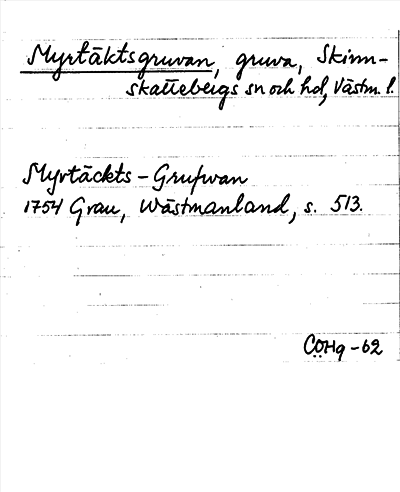 Myrtäktsgruvan, gruva, Skinn-
skattebergs sn och hd, Västm. l.
Myrtäckts-Grufwan
1754 Grau, Wästmanland, s. 513.
CÖHq -62